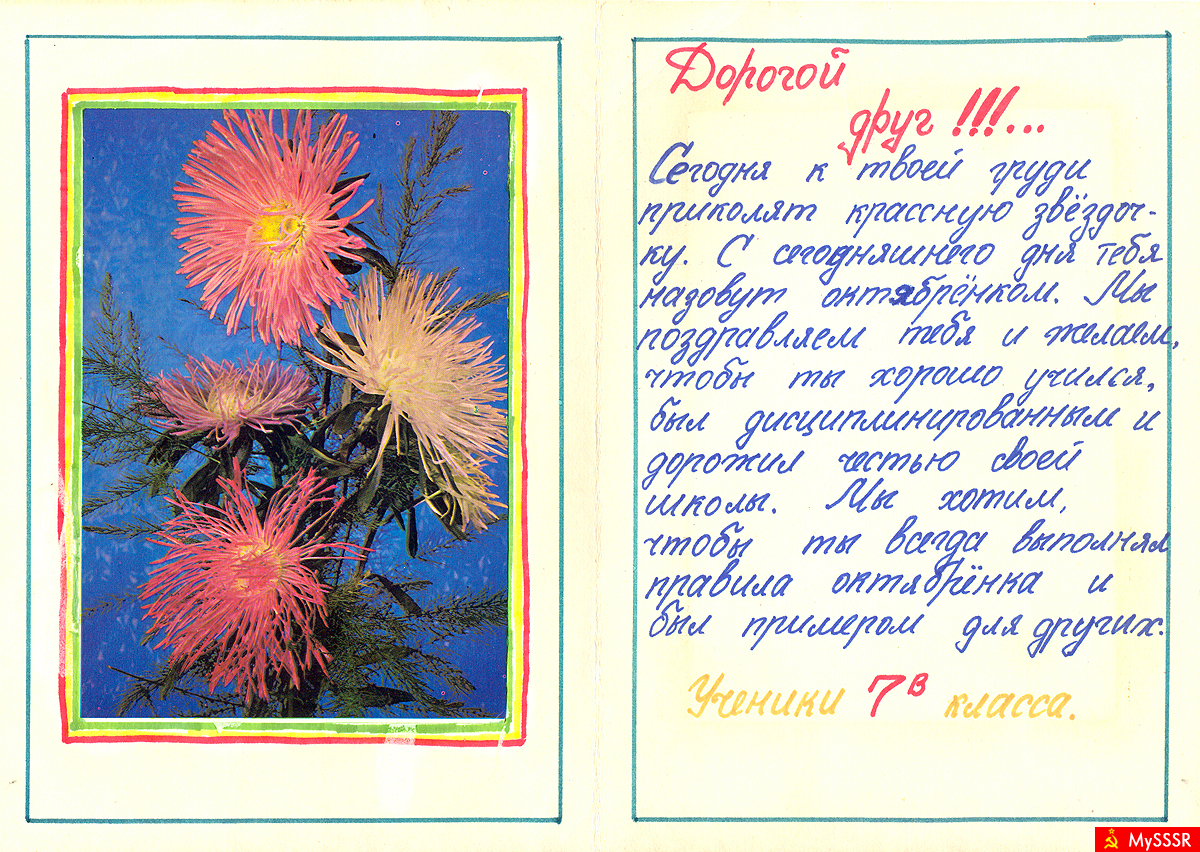 Дорогой
друг !!!...
Сегодня к твоей груди
приколят крассную звёздоч-
ку. С сегодняшнего дня тебя
назовут октябрёнком. Мы
поздравляем тебя и желаем,
чтобы ты хорошо учился,
был дисциплинированным и
дорожил честью своей
школы. Мы хотим,
чтобы ты всегда выполнял
правила октябрёнка и
был примером для других.
Ученики 7в класса.
MySSSR